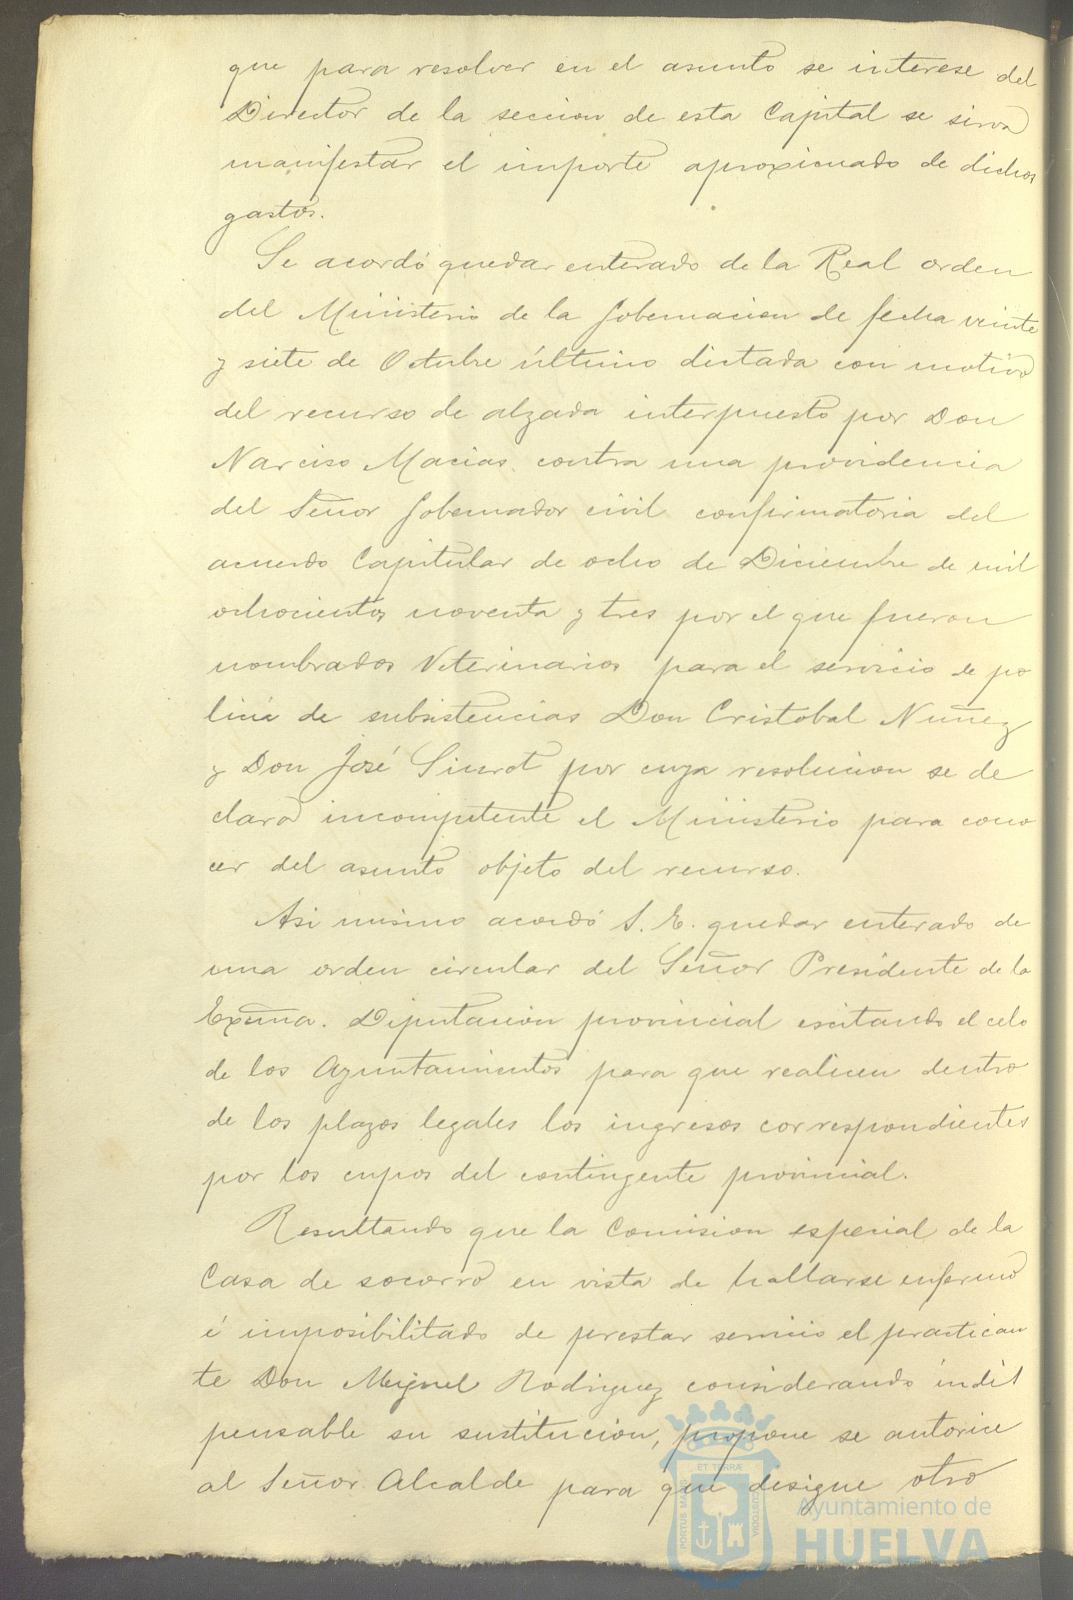 que para resolver en el asunto se interese del
Director de la seccion de esta Capital se sirva
manifestar el importe aproximado de dichos
gastos.
Se acordó quedar enterado de la Real orden
del Ministerio de la Gobernacion de fecha veinte
y siete de Octubre último dictada con motivo
del recurso de alzada interpuesto por Don
Narciso Macias contra una providencia
del Señor Gobernador civil confirmatoria del
acuerdo Capitular de ocho de Diciembre de mil
ochocientos noventa y tres por el que fueron
nombrados Veterinarios para el servicio de po
licia de subsistencias Don Cristobal Nuñez
y Don José Siurot por cuya resolucion se de
clara incompetente el Ministerio para cono
cer del asunto objeto del recurso.
Asi mismo acordó S. E. quedar enterado de
una orden circular del Señor Presidente de la
Excma. Diputacion provincial escitando el celo
de los Ayuntamientos para que realicen dentro
de los plazos legales los ingresos correspondientes
por los cupos del contingente provincial.
Resultando que la Comision especial de la
Casa de socorro en vista de hallarse enfermo
é imposibilitado de prestar servicio el practican
te Don Miguel Rodriguez considerando indis
pensable su sustitucion, propone se autorice
al Señor Alcalde para que designe otro
PORTUS MARIS ET TERRÆ CUSTODIA
Ayuntamiento de
HUELVA